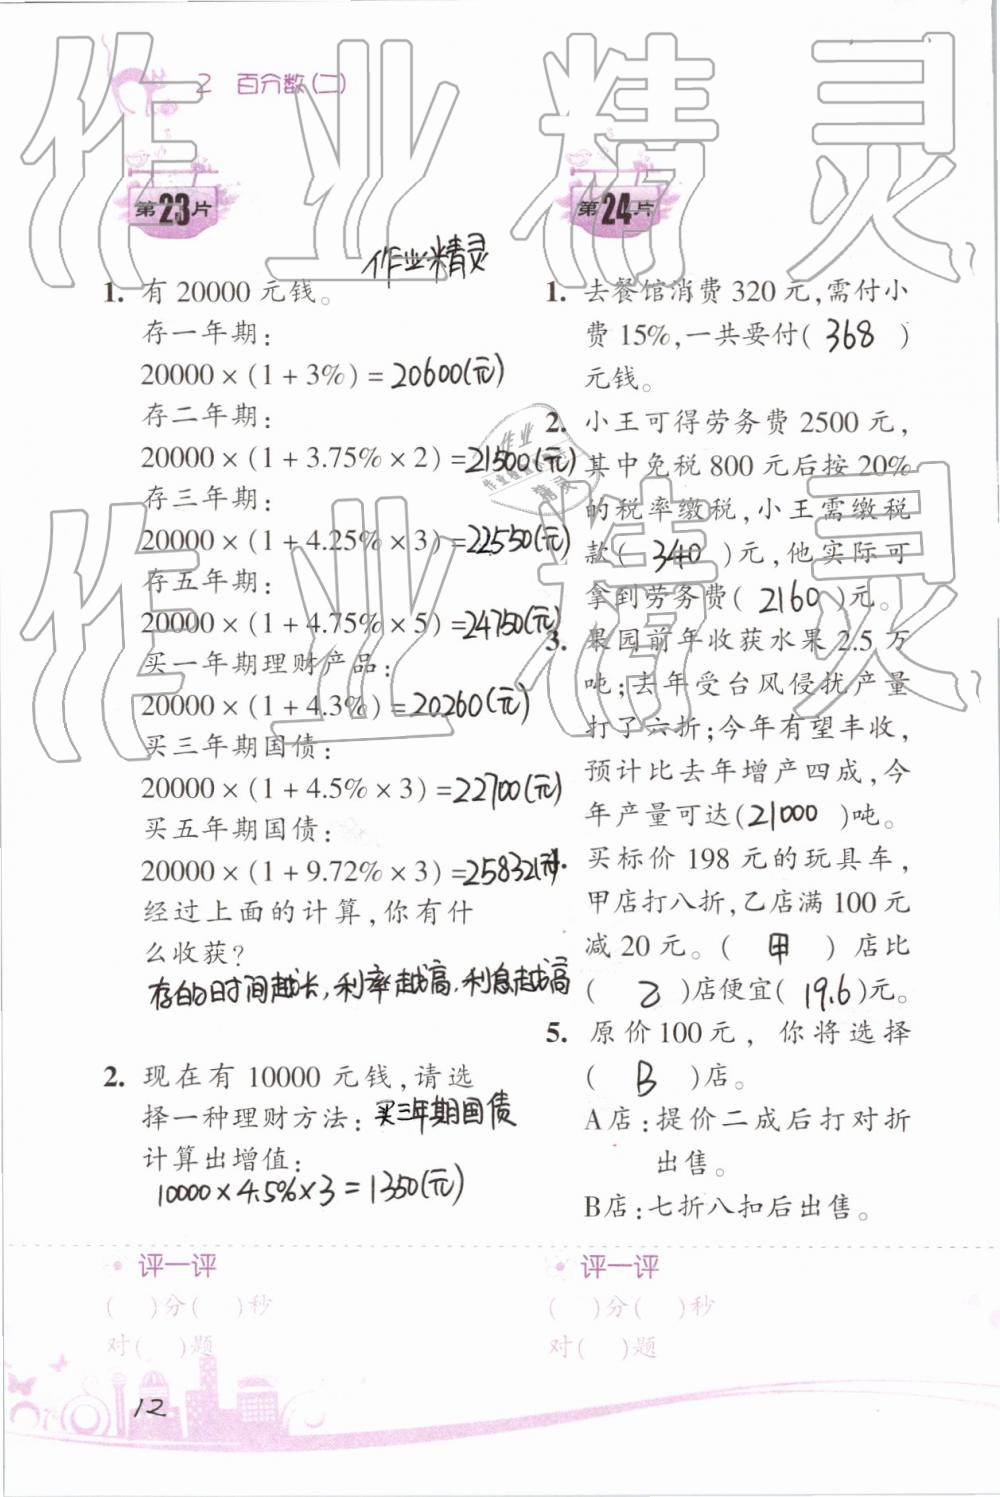 2 百分数(二)
第23片
作业精灵
1. 有20000元钱。
存一年期:
20000×(1+3%)=20600(元)
存二年期:
20000×(1+3.75%×2)=21500(元)
存三年期:
20000×(1+4.25%×3)=22550(元)
存五年期:
20000×(1+4.75%×5)=24750(元)
买一年期理财产品:
20000×(1+4.3%)=20260(元)
买三年期国债:
20000×(1+4.5%×3)=22700(元)
买五年期国债:
20000×(1+9.72%×3)=25832(元)
经过上面的计算,你有什
么收获?
存的时间越长,利率越高,利息越高
2. 现在有10000元钱,请选
择一种理财方法:买三年期国债
计算出增值:
10000×4.5%×3=1350(元)
评一评
( )分( )秒
对( )题
第24片
1. 去餐馆消费320元,需付小
费15%,一共要付( 368 )
元钱。
2. 小王可得劳务费2500元,
其中免税800元后按20%
的税率缴税,小王需缴税
款( 340 )元,他实际可
拿到劳务费( 2160 )元。
3. 果园前年收获水果2.5万
吨;去年受台风侵扰产量
打了六折;今年有望丰收,
预计比去年增产四成,今
年产量可达(21000 )吨。
4. 买标价198元的玩具车,
甲店打八折,乙店满100元
减20元。( 甲 )店比
( 乙 )店便宜( 19.6)元。
5. 原价100元,你将选择
( B )店。
A店:提价二成后打对折
出售。
B店:七折八扣后出售。
评一评
( )分( )秒
对( )题
12
作业精灵
作业精灵